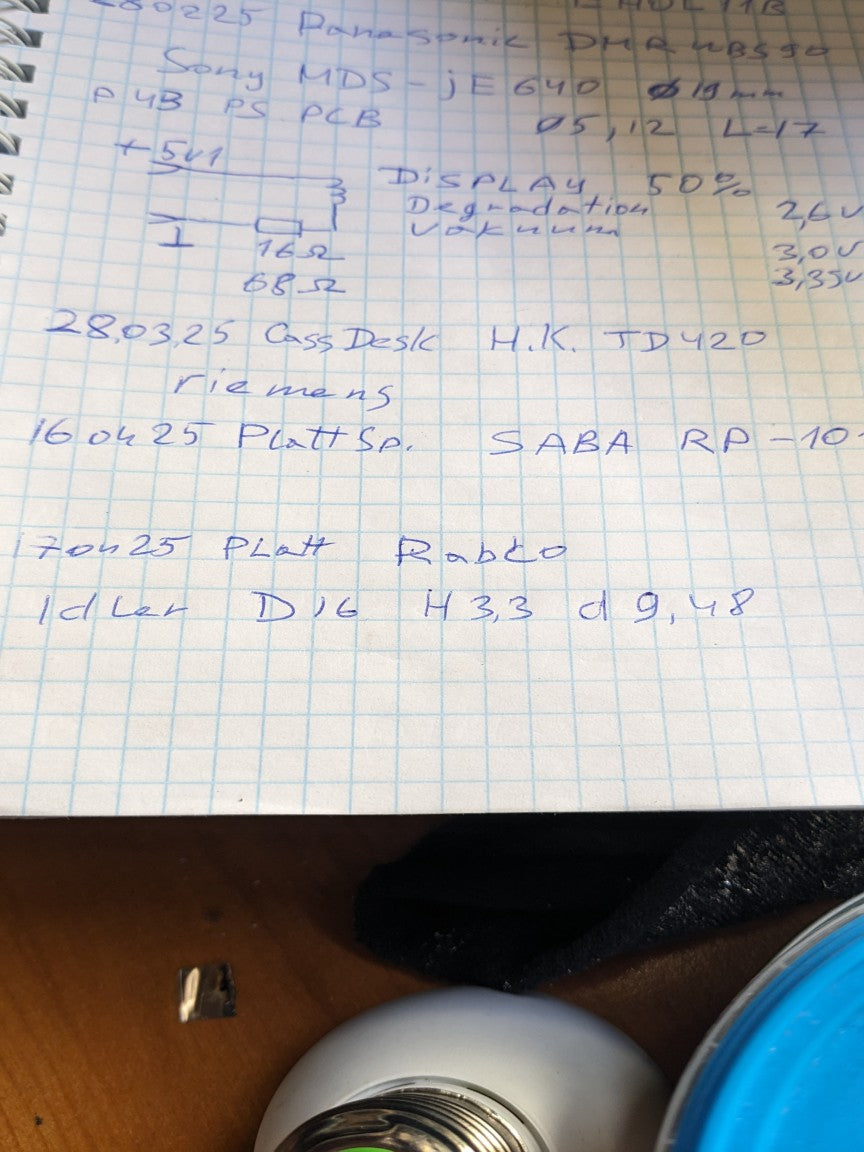 280225 Panasonic DMR UBS90
Sony MDS-jE640 ø19mm
P 4B PS PCB ø5,12 L=17
+5V1 DiSPLAy 50%
Degradation 2,6V
Vakuum
16Ω 3,0V
68Ω 3,35V
28,03,25 Cass Desk H.K. TD420
riemens
160425 PlattSp. SABA RP-10
170425 PLatt Rabco
Idler D16 H3,3 d9,48